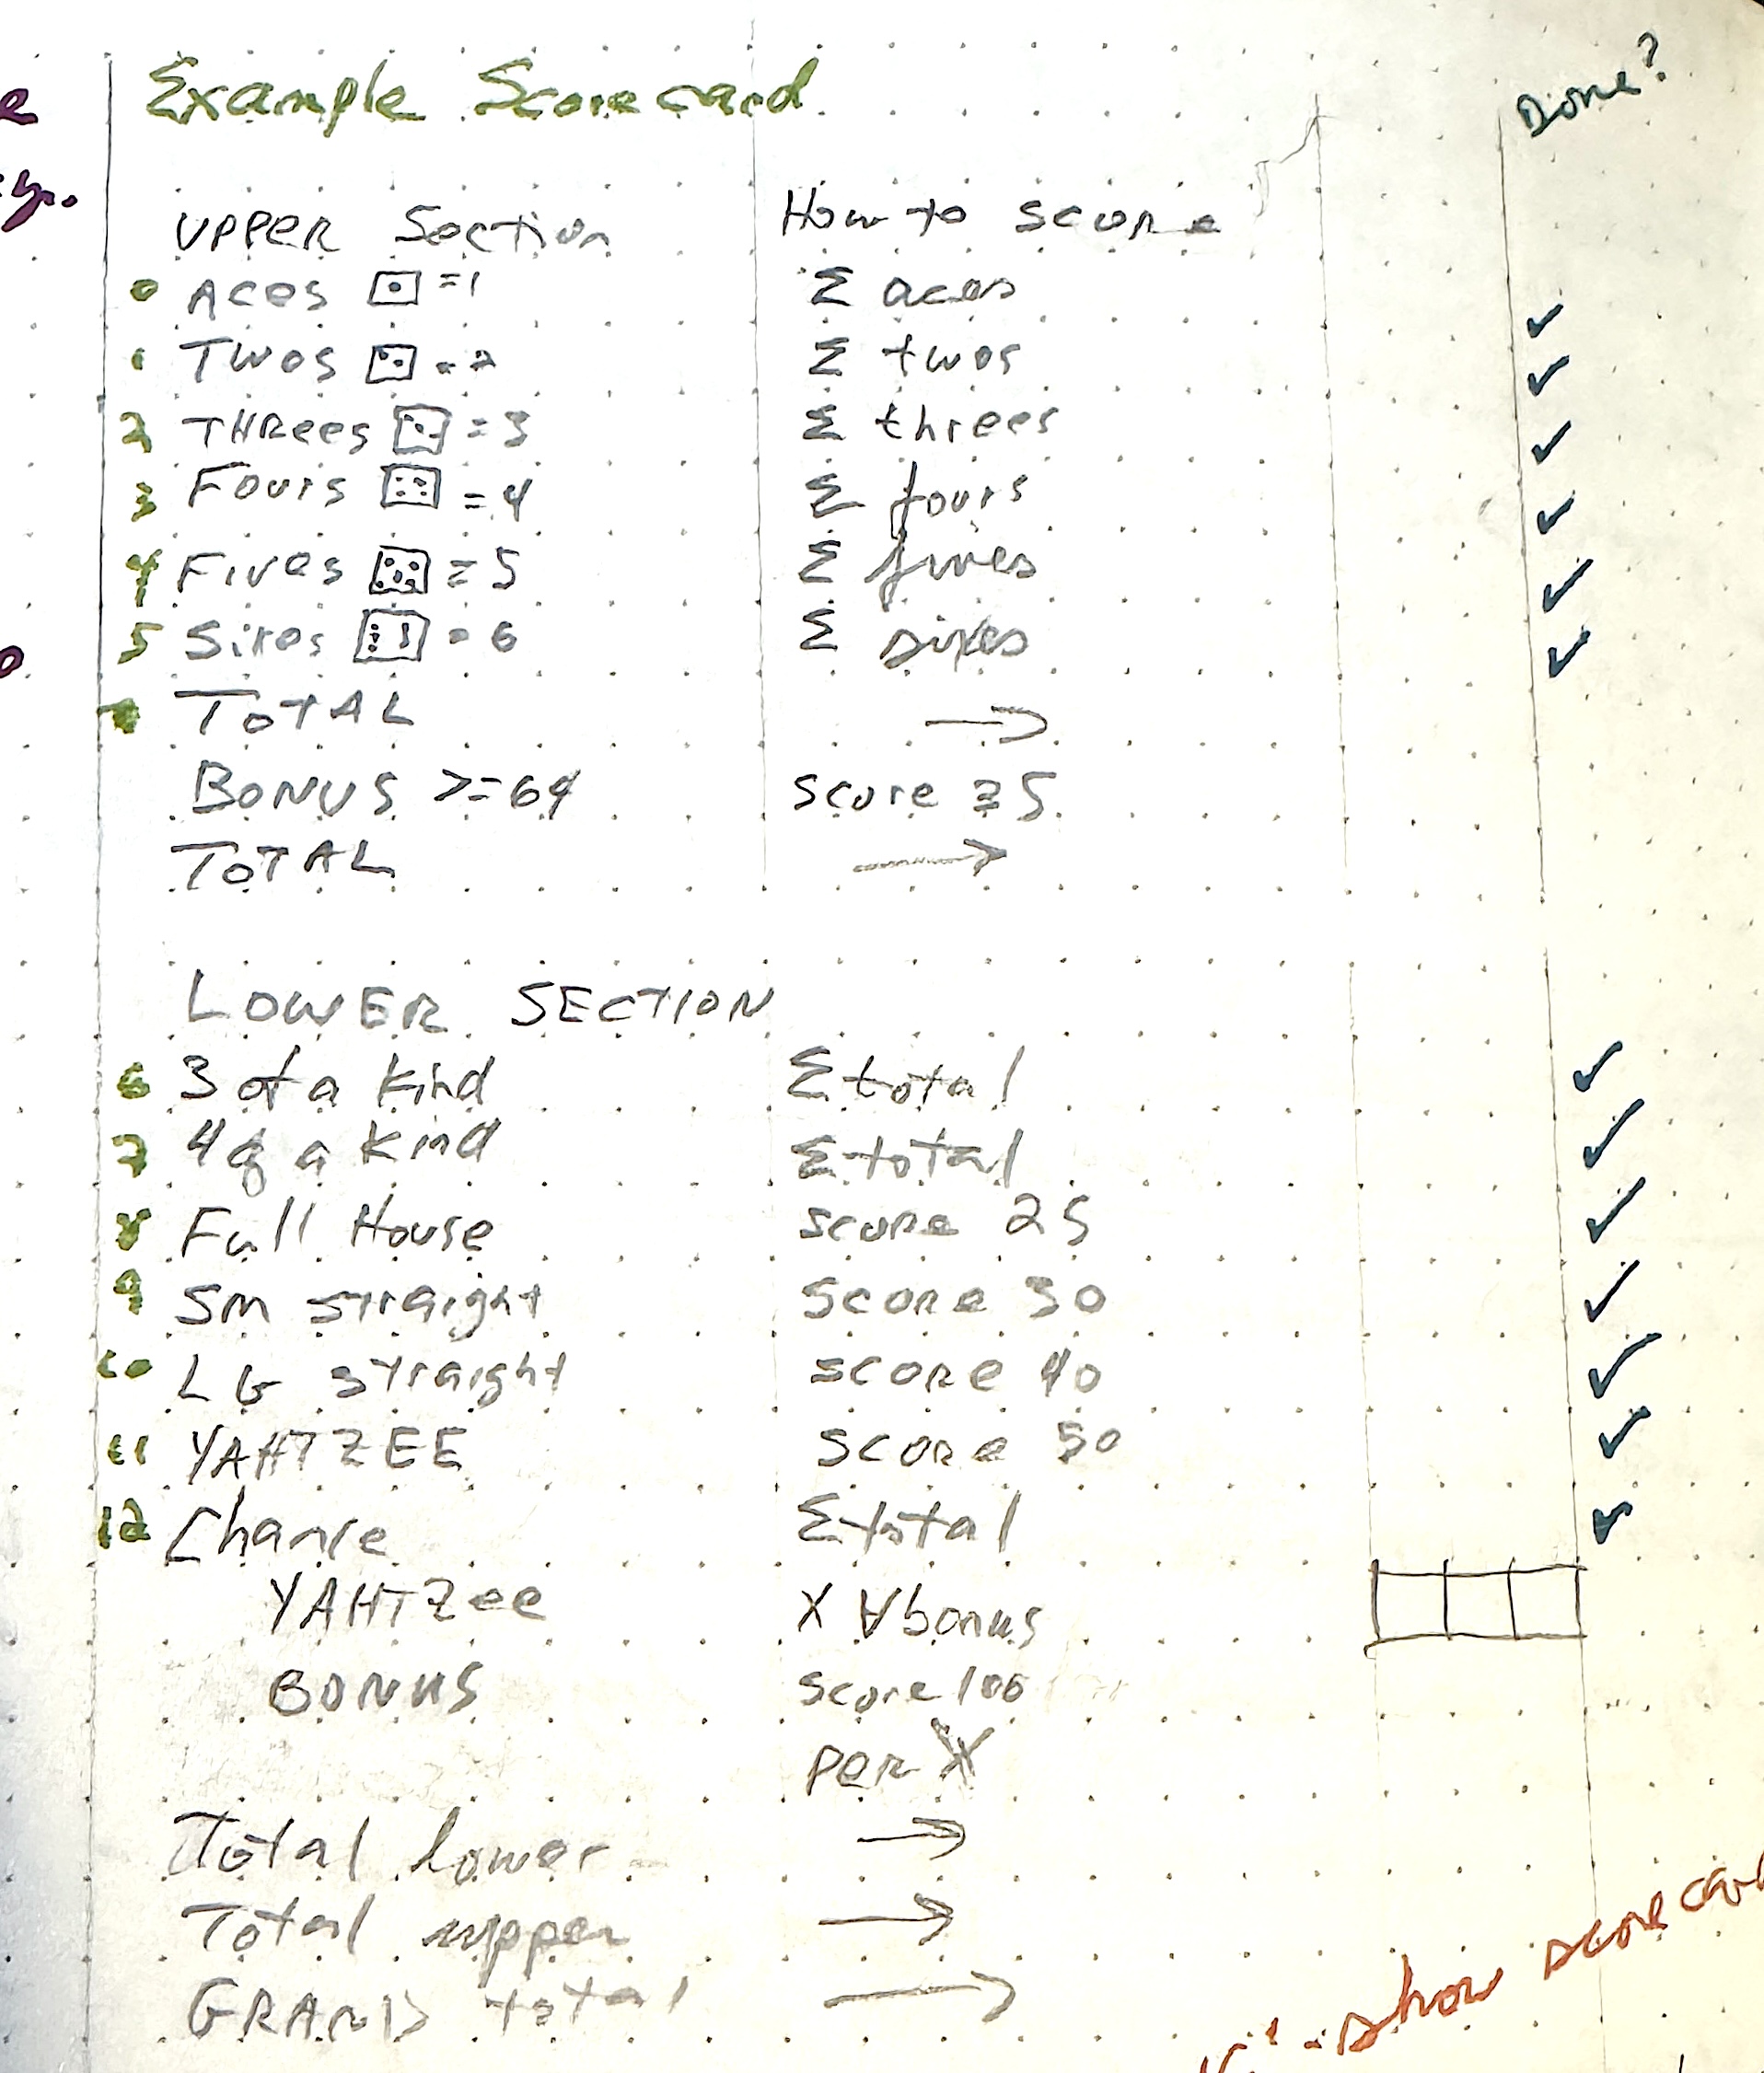 Example Scorecard
Done?
UPPER Section How to score
0 Aces =1 Σ aces
1 Twos = 2 Σ twos
2 THRees = 3 Σ threes
3 Fours = 4 Σ fours
4 Fives = 5 Σ fives
5 Sixes = 6 Σ sixes
TOTAL →
BONUS >=64 score 35
TOTAL →
LOWER SECTION
6 3 of a kind Σ total
7 4 of a kind Σ total
8 Full House score 25
9 Sm straight Score 30
10 LG straight score 40
11 YAHTZEE score 50
12 Chance Σ total
YAHTZee X ∀ bonus
BONUS score 100
per X
Total lower →
Total upper →
GRAND total →
show scorecard